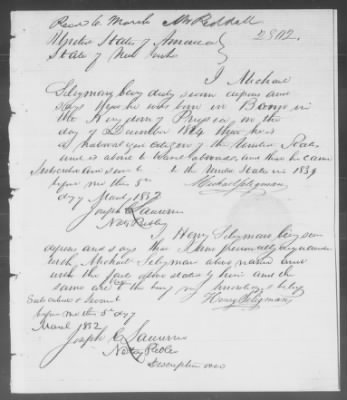 Recd 6. March
2802.
United States of America
State of New York
I Michael
Seligman being duly sworn deposes and
says that he was born in                in
the Kingdom of Prussia on the
day of December 1824 that he is
a naturalized citizen of the United States
and is about to travel abroad, and that he came
Subscribed and sworn to to the United States in
before me this 5th Michael Seligman
day March 1872
Joseph                Lawrence
Notary Public
I Henry Seligman being sworn
deposes and says that I am personally acquainted
with Michael Seligman above named and
with the facts above stated by him and the
same are to the best of my knowledge & belief
Subscribed & sworn Henry Seligman
before me this 5th day
March 1872
Joseph                Lawrence
Notary Public
Description over